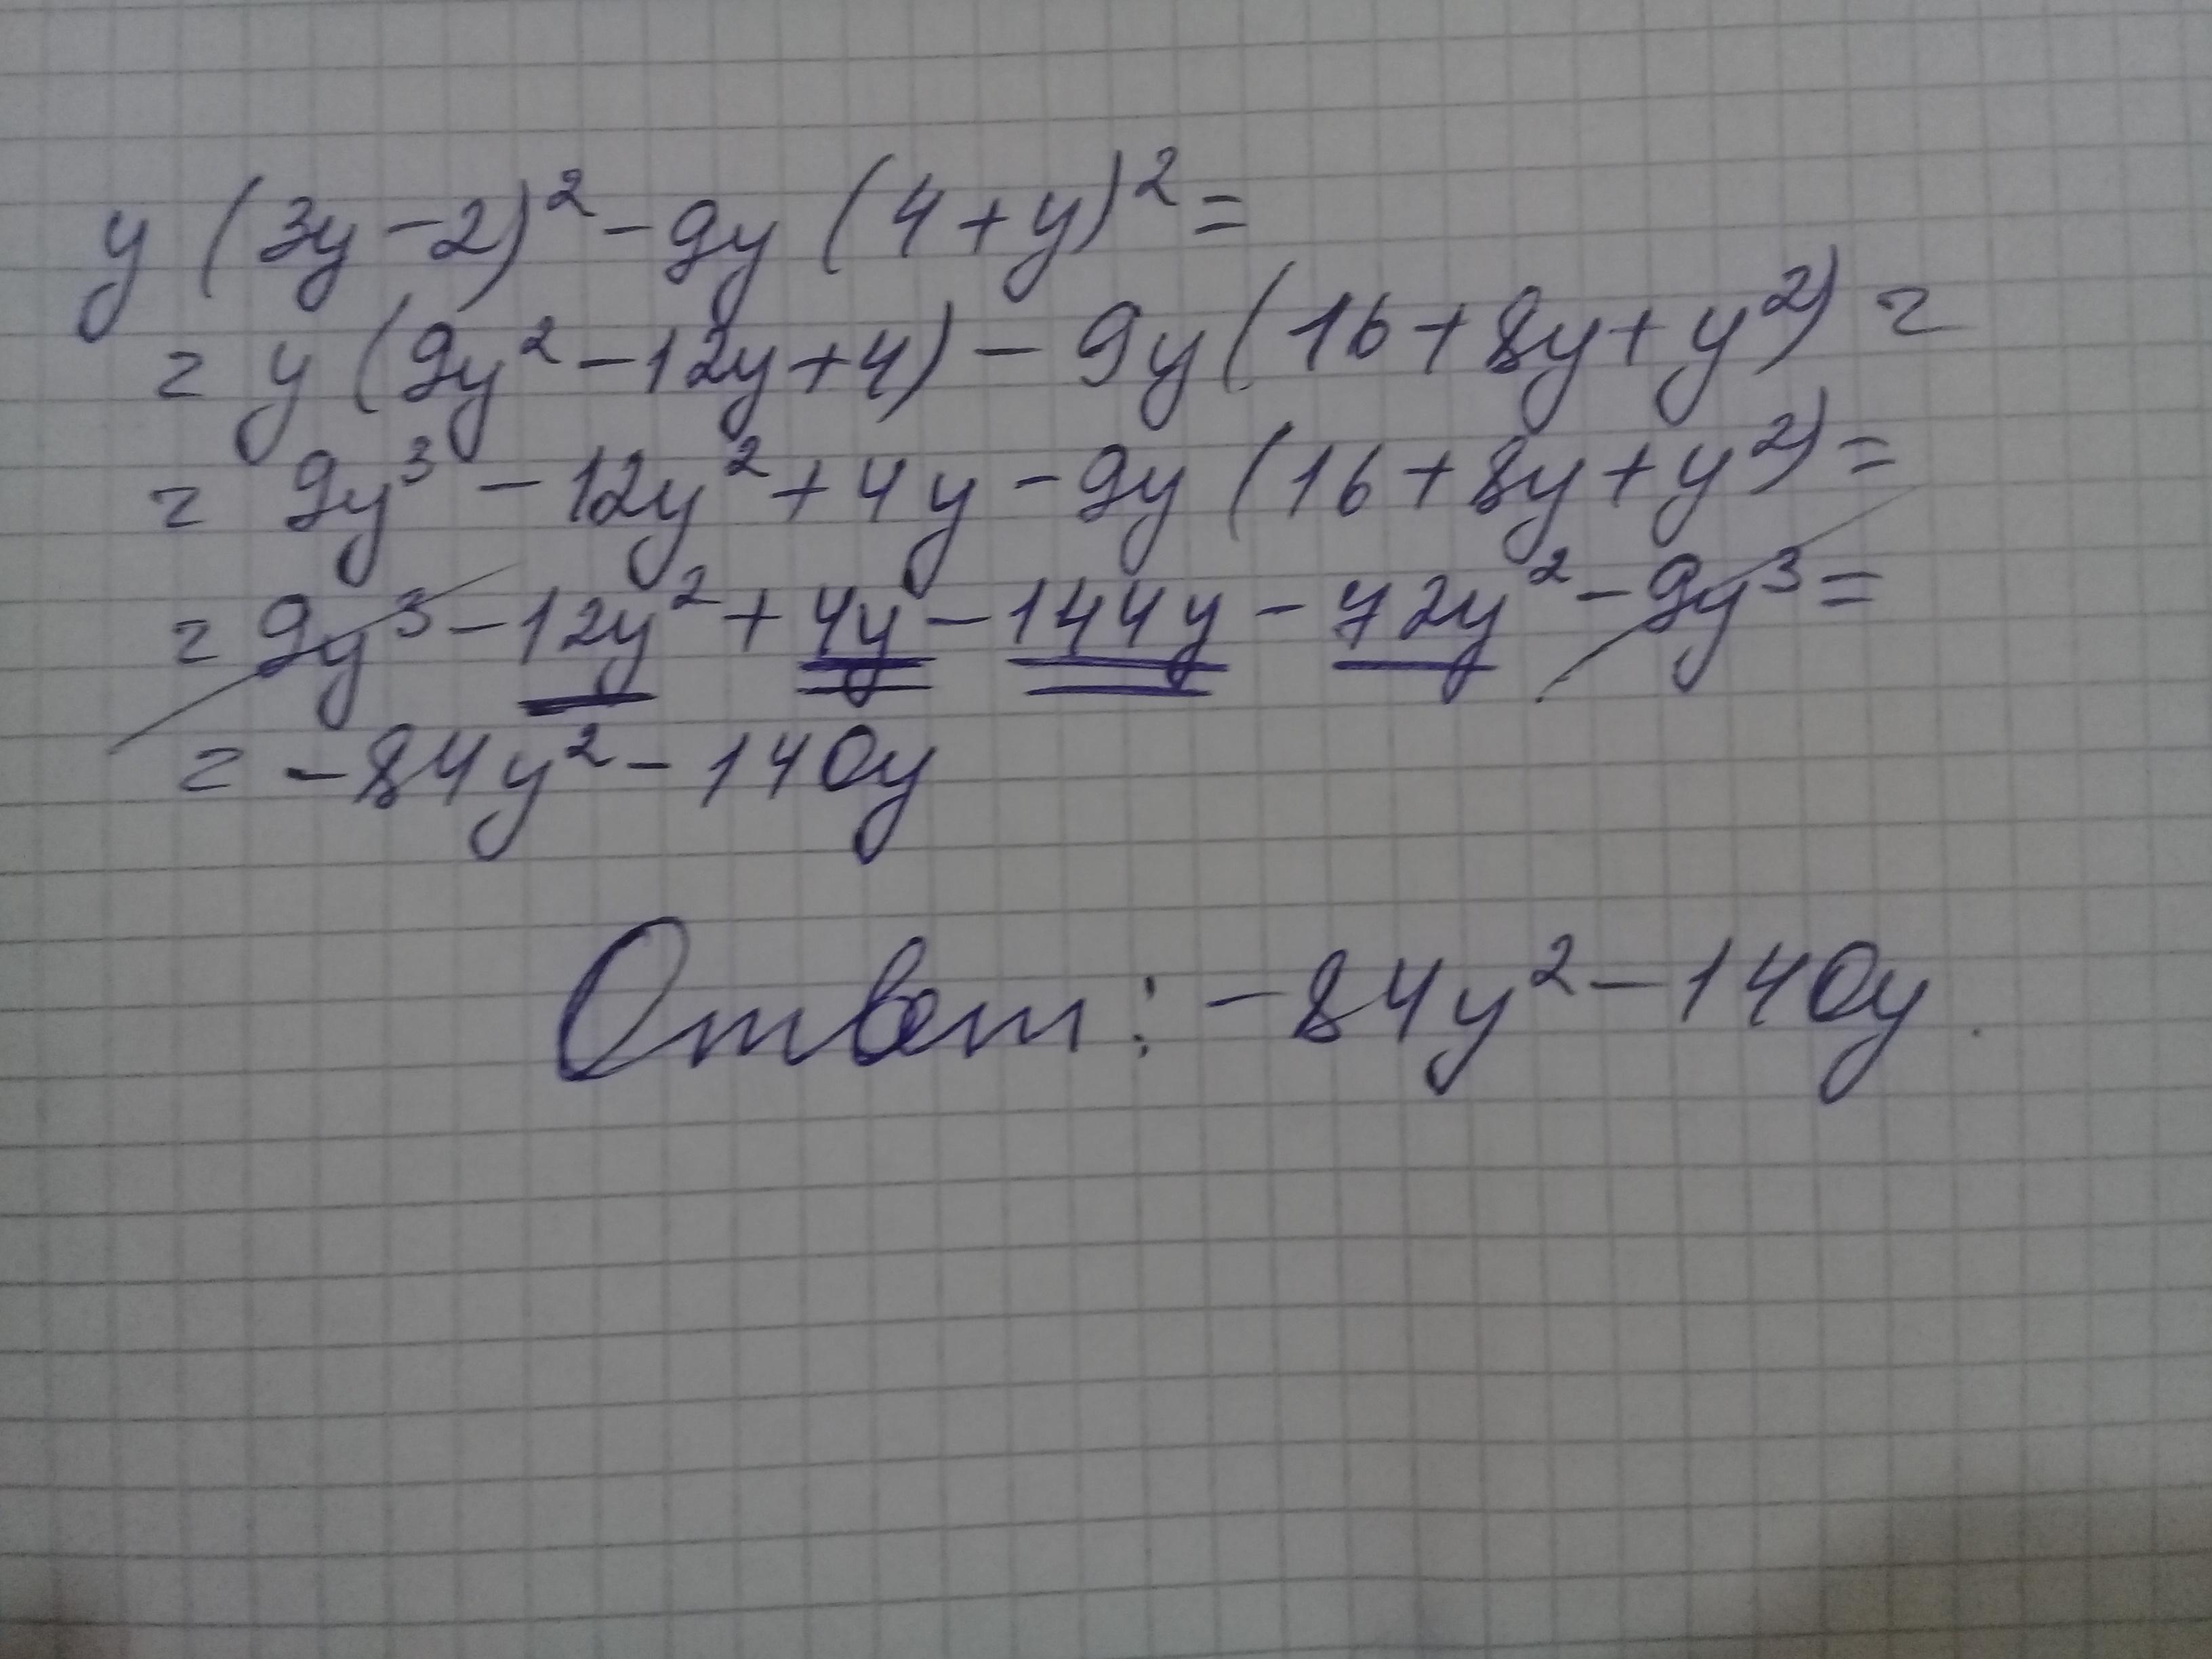 y (3y - 2)² - 9y (4 + y)² =
= y (9y² - 12y + 4) - 9y (16 + 8y + y²) =
= 9y³ - 12y² + 4y - 9y (16 + 8y + y²) =
= 9y³ - 12y² + 4y - 144y - 72y² - 9y³ =
= - 84y² - 140y
Ответ: - 84y² - 140y.